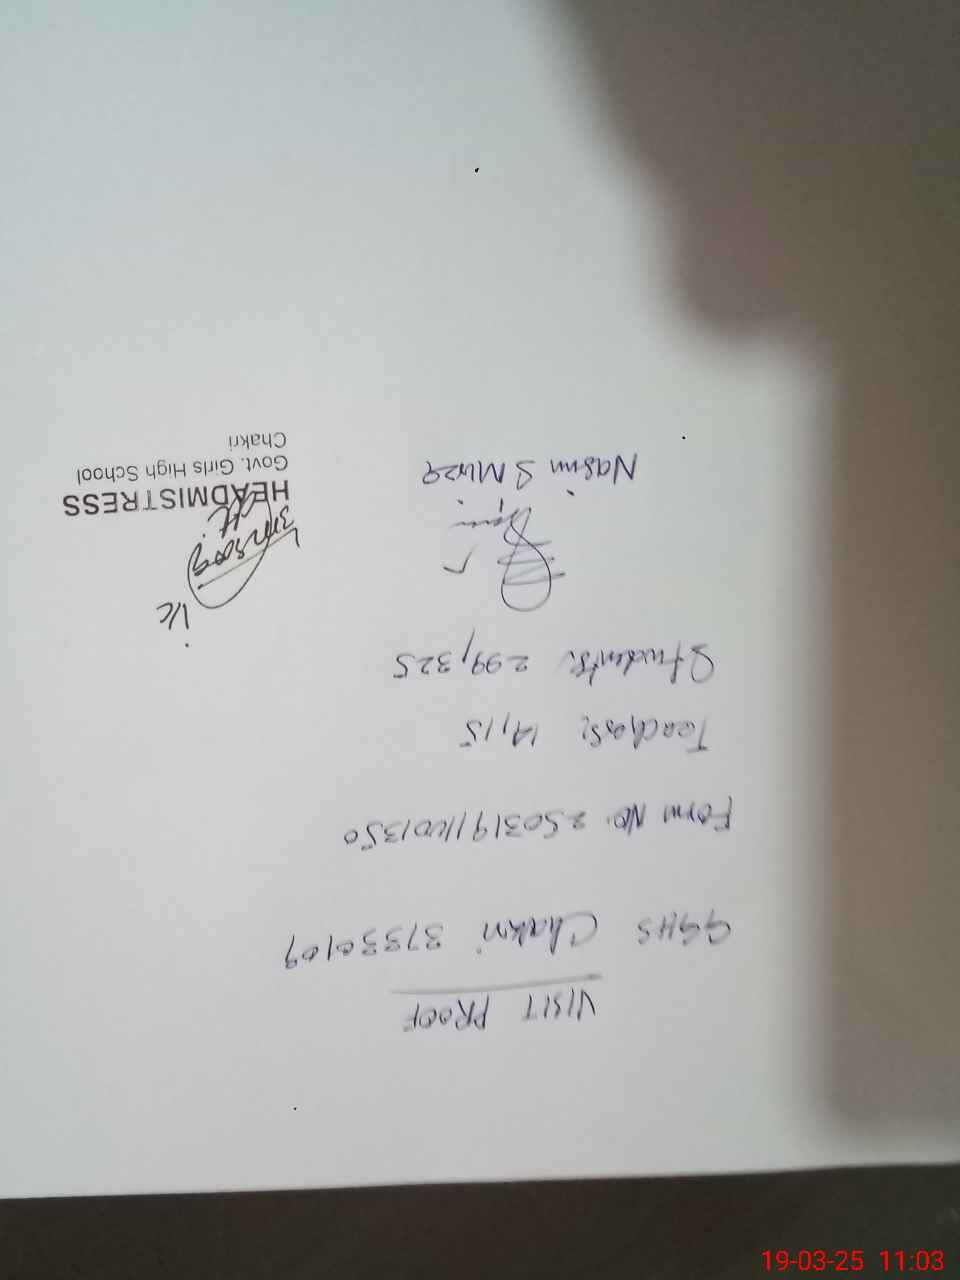 VISIT PROOF
GGHS Chakri 37330109
Form No. 250319111001350
Teachers: 14,15
Students: 299,325
Nasim S Mirza
I/c
HEADMISTRESS
Govt. Girls High School
Chakri
19-03-25 11:03